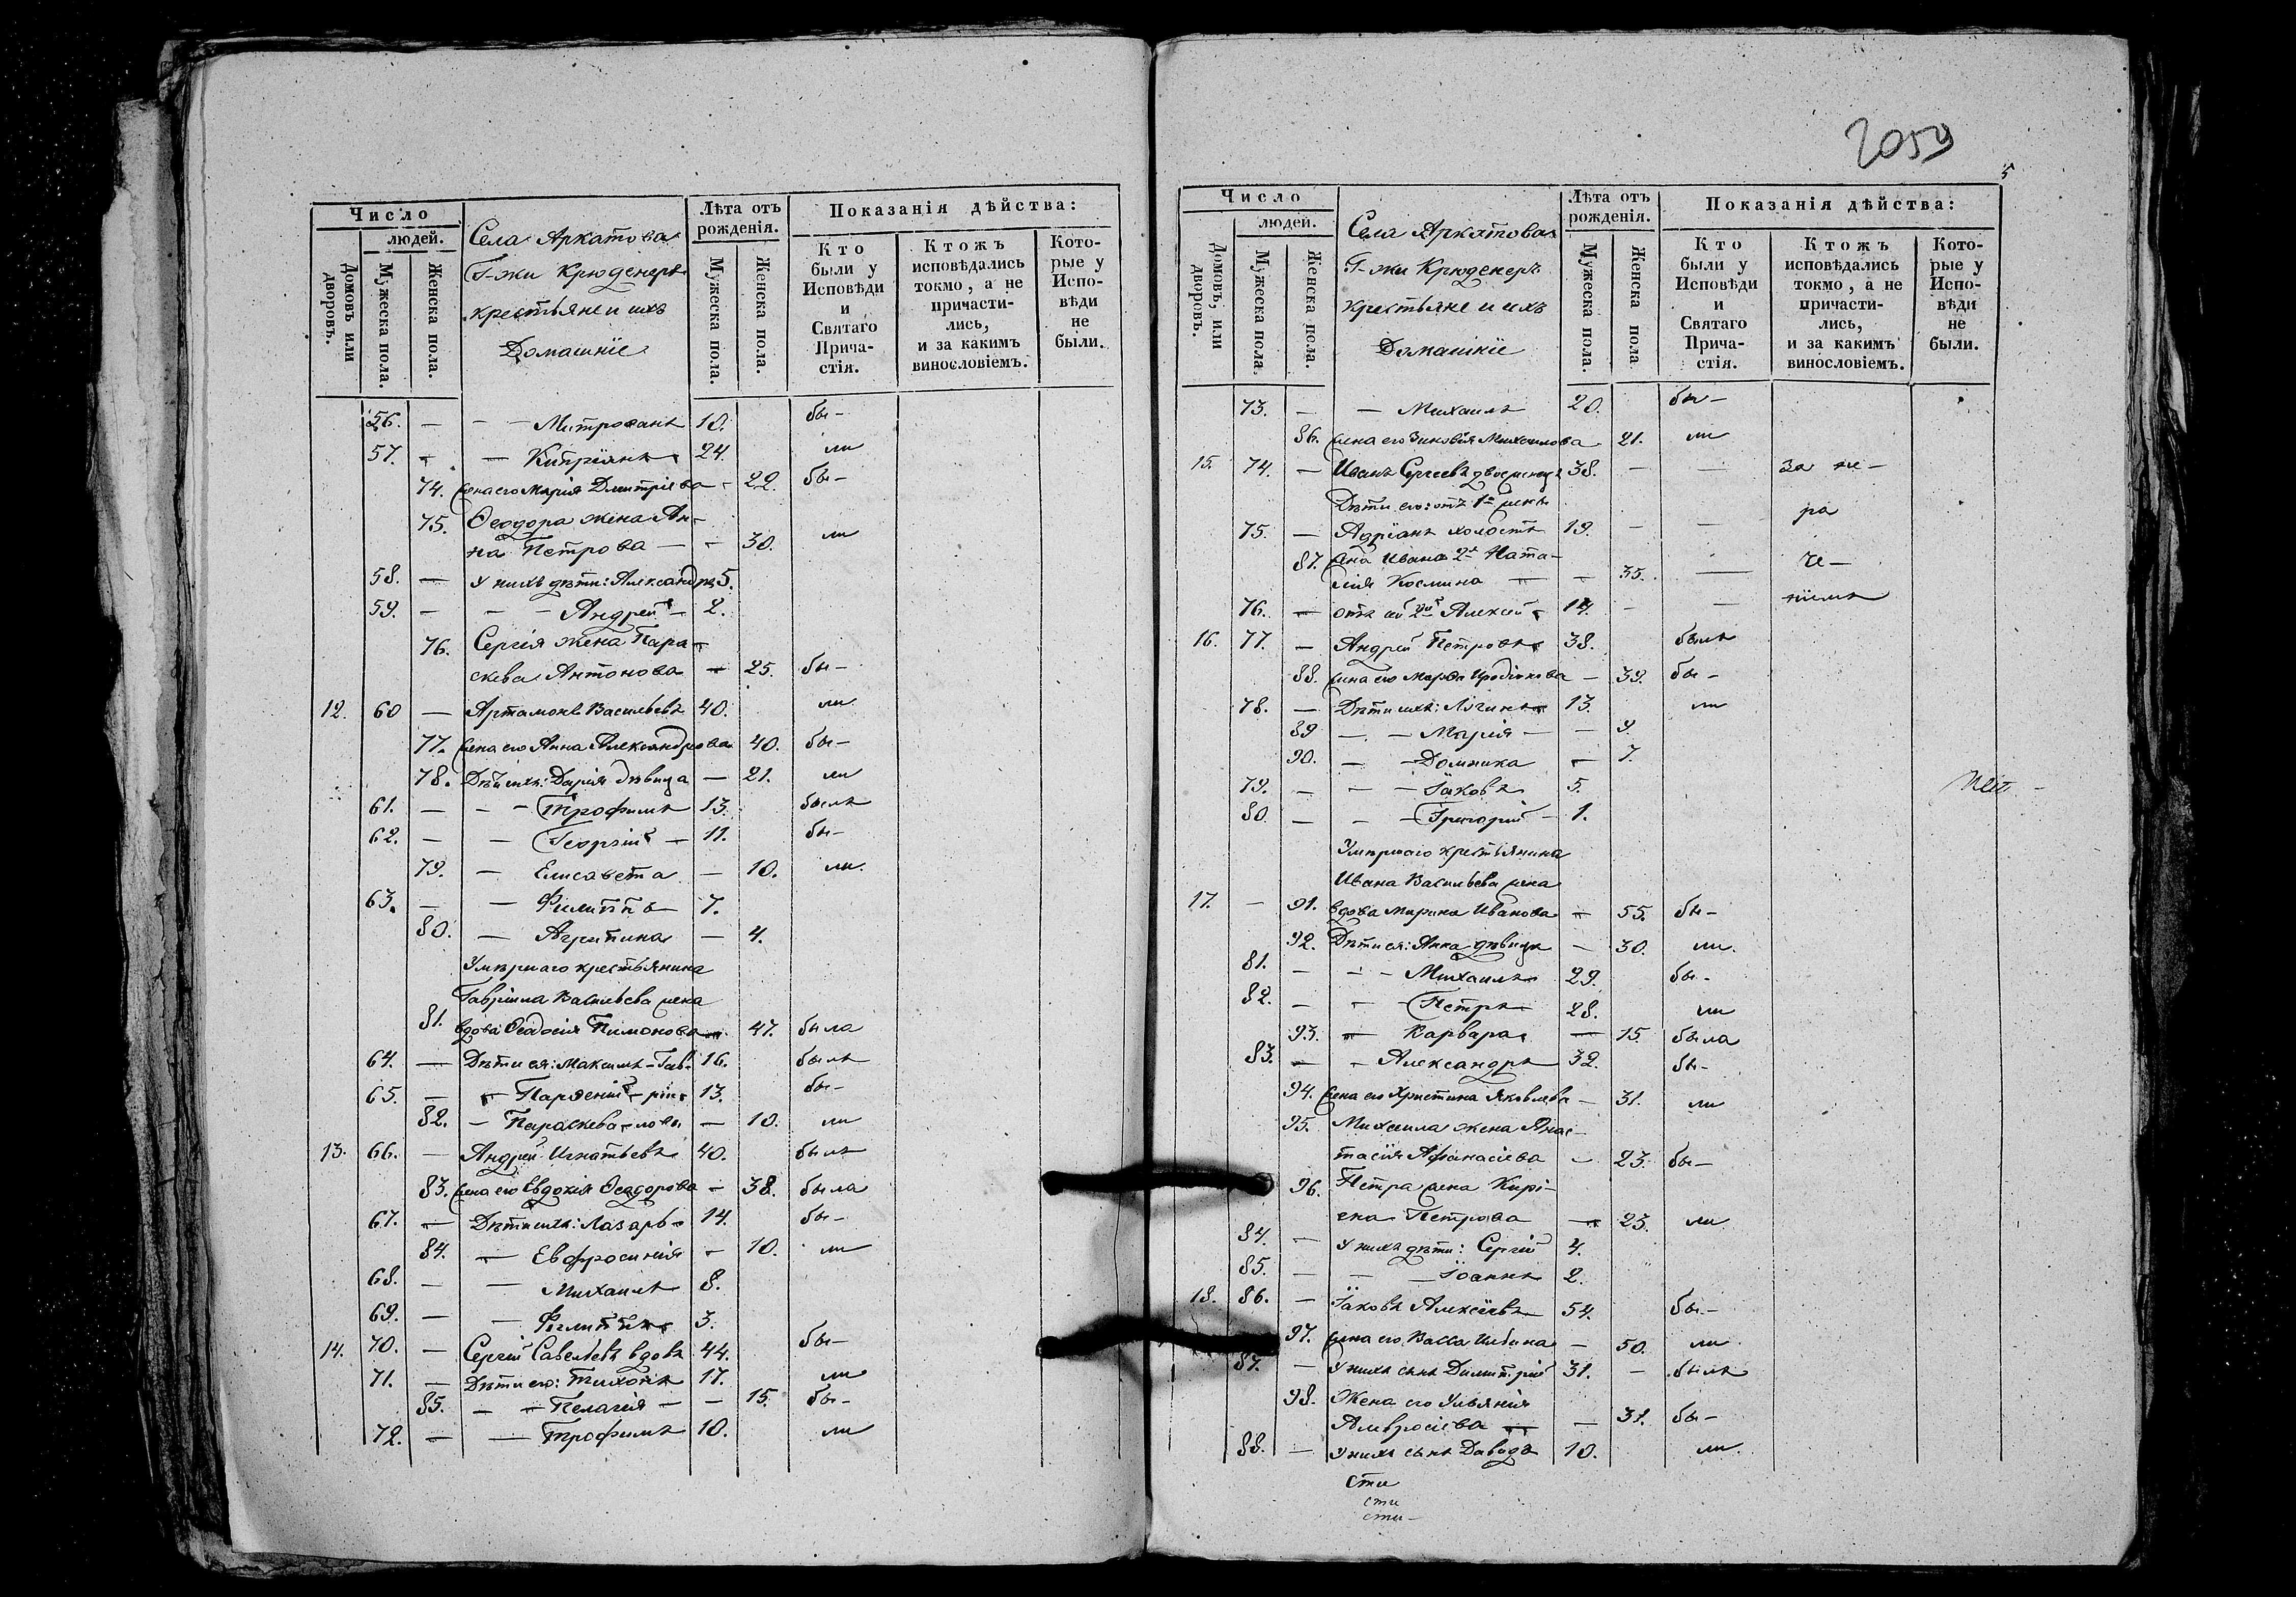 2059
5
Число
людей.
Домовъ или дворовъ.
Мужеска пола.
Женска пола.
Села Аркатова
Г-жи Крюденеръ
крестьяне и ихъ
Домашніе
Лѣта отъ рожденія.
Мужеска пола.
Женска пола.
Показанія дѣйства:
Кто были у Исповѣди и Святаго Прича-стія.
Ктожъ исповѣдались токмо, а не причасти-лись, и за какимъ винословіемъ.
Кото-рые у Испо-вѣди не были.
56. — — — Митрофанъ 10. бы-
57. — — Кипріянъ 24. ли
74. жена его Марія Дмитріева - 22. бы-
75. Ѳеодора жена Ан-
на Петрова — - 30. ли
58. — У нихъ дѣти: Александръ 5.
59. — — — Андрей — 2.
76. Сергія жена Пара-
скева Антонова — 25. бы-
12. 60 — Артамонъ Васильевъ 40. ли
77. жена его Анна Александрова 40. бы-
78. Дѣти ихъ: Дарія дѣвица — 21. ли
61. — — — Трофимъ 13. былъ
62. — — Георгій — 11. бы-
79. — Елисавета — 10. ли.
63. — — Филиппъ 7.
80. — Агрипина — 4.
Умершаго крестьянина
Гавріила Васильева жена
81. вдова Ѳеодосія Пимонова 47. была
64. — Дѣти ея: Максимъ - Гав- 16. былъ
65. — — Парѳеній - ріи- 13. бы-
82. — Параскева - ловы — 10. ли
13. 66. — Андрей Игнатьевъ 40. былъ
83. жена его Евдокія Ѳеодорова — 38. была
67. — Дѣти ихъ: Лазарь 14. бы-
84. — Евфросинія - 10. ли
68. — — Михаилъ 8.
69. — — Филиппъ 3.
14. 70. — Сергій Савельевъ вдовъ 44. бы-
71. — Дѣти его: Тихонъ 17. ли
85. — — Пелагія — — 15. бы-
72. — — Трофимъ 10. ли
Число
людей.
Домовъ, или дворовъ.
Мужеска пола.
Женска пола.
Села Аркатова
Г-жи Крюденеръ
крестьяне и ихъ
Домашніе
Лѣта отъ рожденія.
Мужеска пола.
Женска пола
Показанія дѣйства:
Кто были у Исповѣди и Святаго Прича-стія.
Ктожъ исповѣдались токмо, а не причасти-лись, и за какимъ винословіемъ.
Кото-рые у Испо-вѣди не были.
73. — — Михаилъ 20. бы-
86. жена его Зиновія Михаилова 21. ли
15. 74. — Иванъ Сергеевъ двоеженецъ 38. — — за не-
Дѣти его: отъ 1й жены
ра
75. — Адріанъ холостъ 19. — —
87. жена Ивана 2я Ната-
че-
лія Космина — - 35. —
76. — отъ ей Алексій 14. - — ніемъ
16. 77. — Андрей Петровъ 38. былъ
88. жена его Марѳа Иродіонова — 39. бы-
78. — Дѣти ихъ: Логинъ 13. ли
89 — — Марія — — 9.
90. — — Домника — 7.
79. — — — Іаковъ 5.
80. — — — Григорій — 1.
Умершаго крестьянина
Ивана Васильева жена
17. — 91. вдова Марина Иванова — 55. бы-
92. Дѣти ея: Анна дѣвица — 30. ли.
81. — — — Михаилъ 29. бы-
82. — — — Петръ 28. ли
93. — Варвара — 15. была
83. — — Александръ 32. бы-
94. жена его Христина Яковлева — 31. ли
95. Михаила жена Анас-
тасія Афанасіева — 23. бы-
96. Петра жена Кирі-
ена Петрова — 23. ли
84. — У нихъ дѣти: Сергій 4.
85. — — — Іоаннъ 2.
18. 86. — Іаковъ Алексіевъ 54. бы-
97. жена его Васса — 50. ли
87. — У нихъ сынъ Димитрій 31. — былъ
98. Жена его Ульянія
Амвросіева — — 31. бы-
88. — У нихъ сынъ Давидъ 10. ли.
сти
сти
сти-